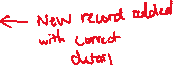 New record added
with correct
detail